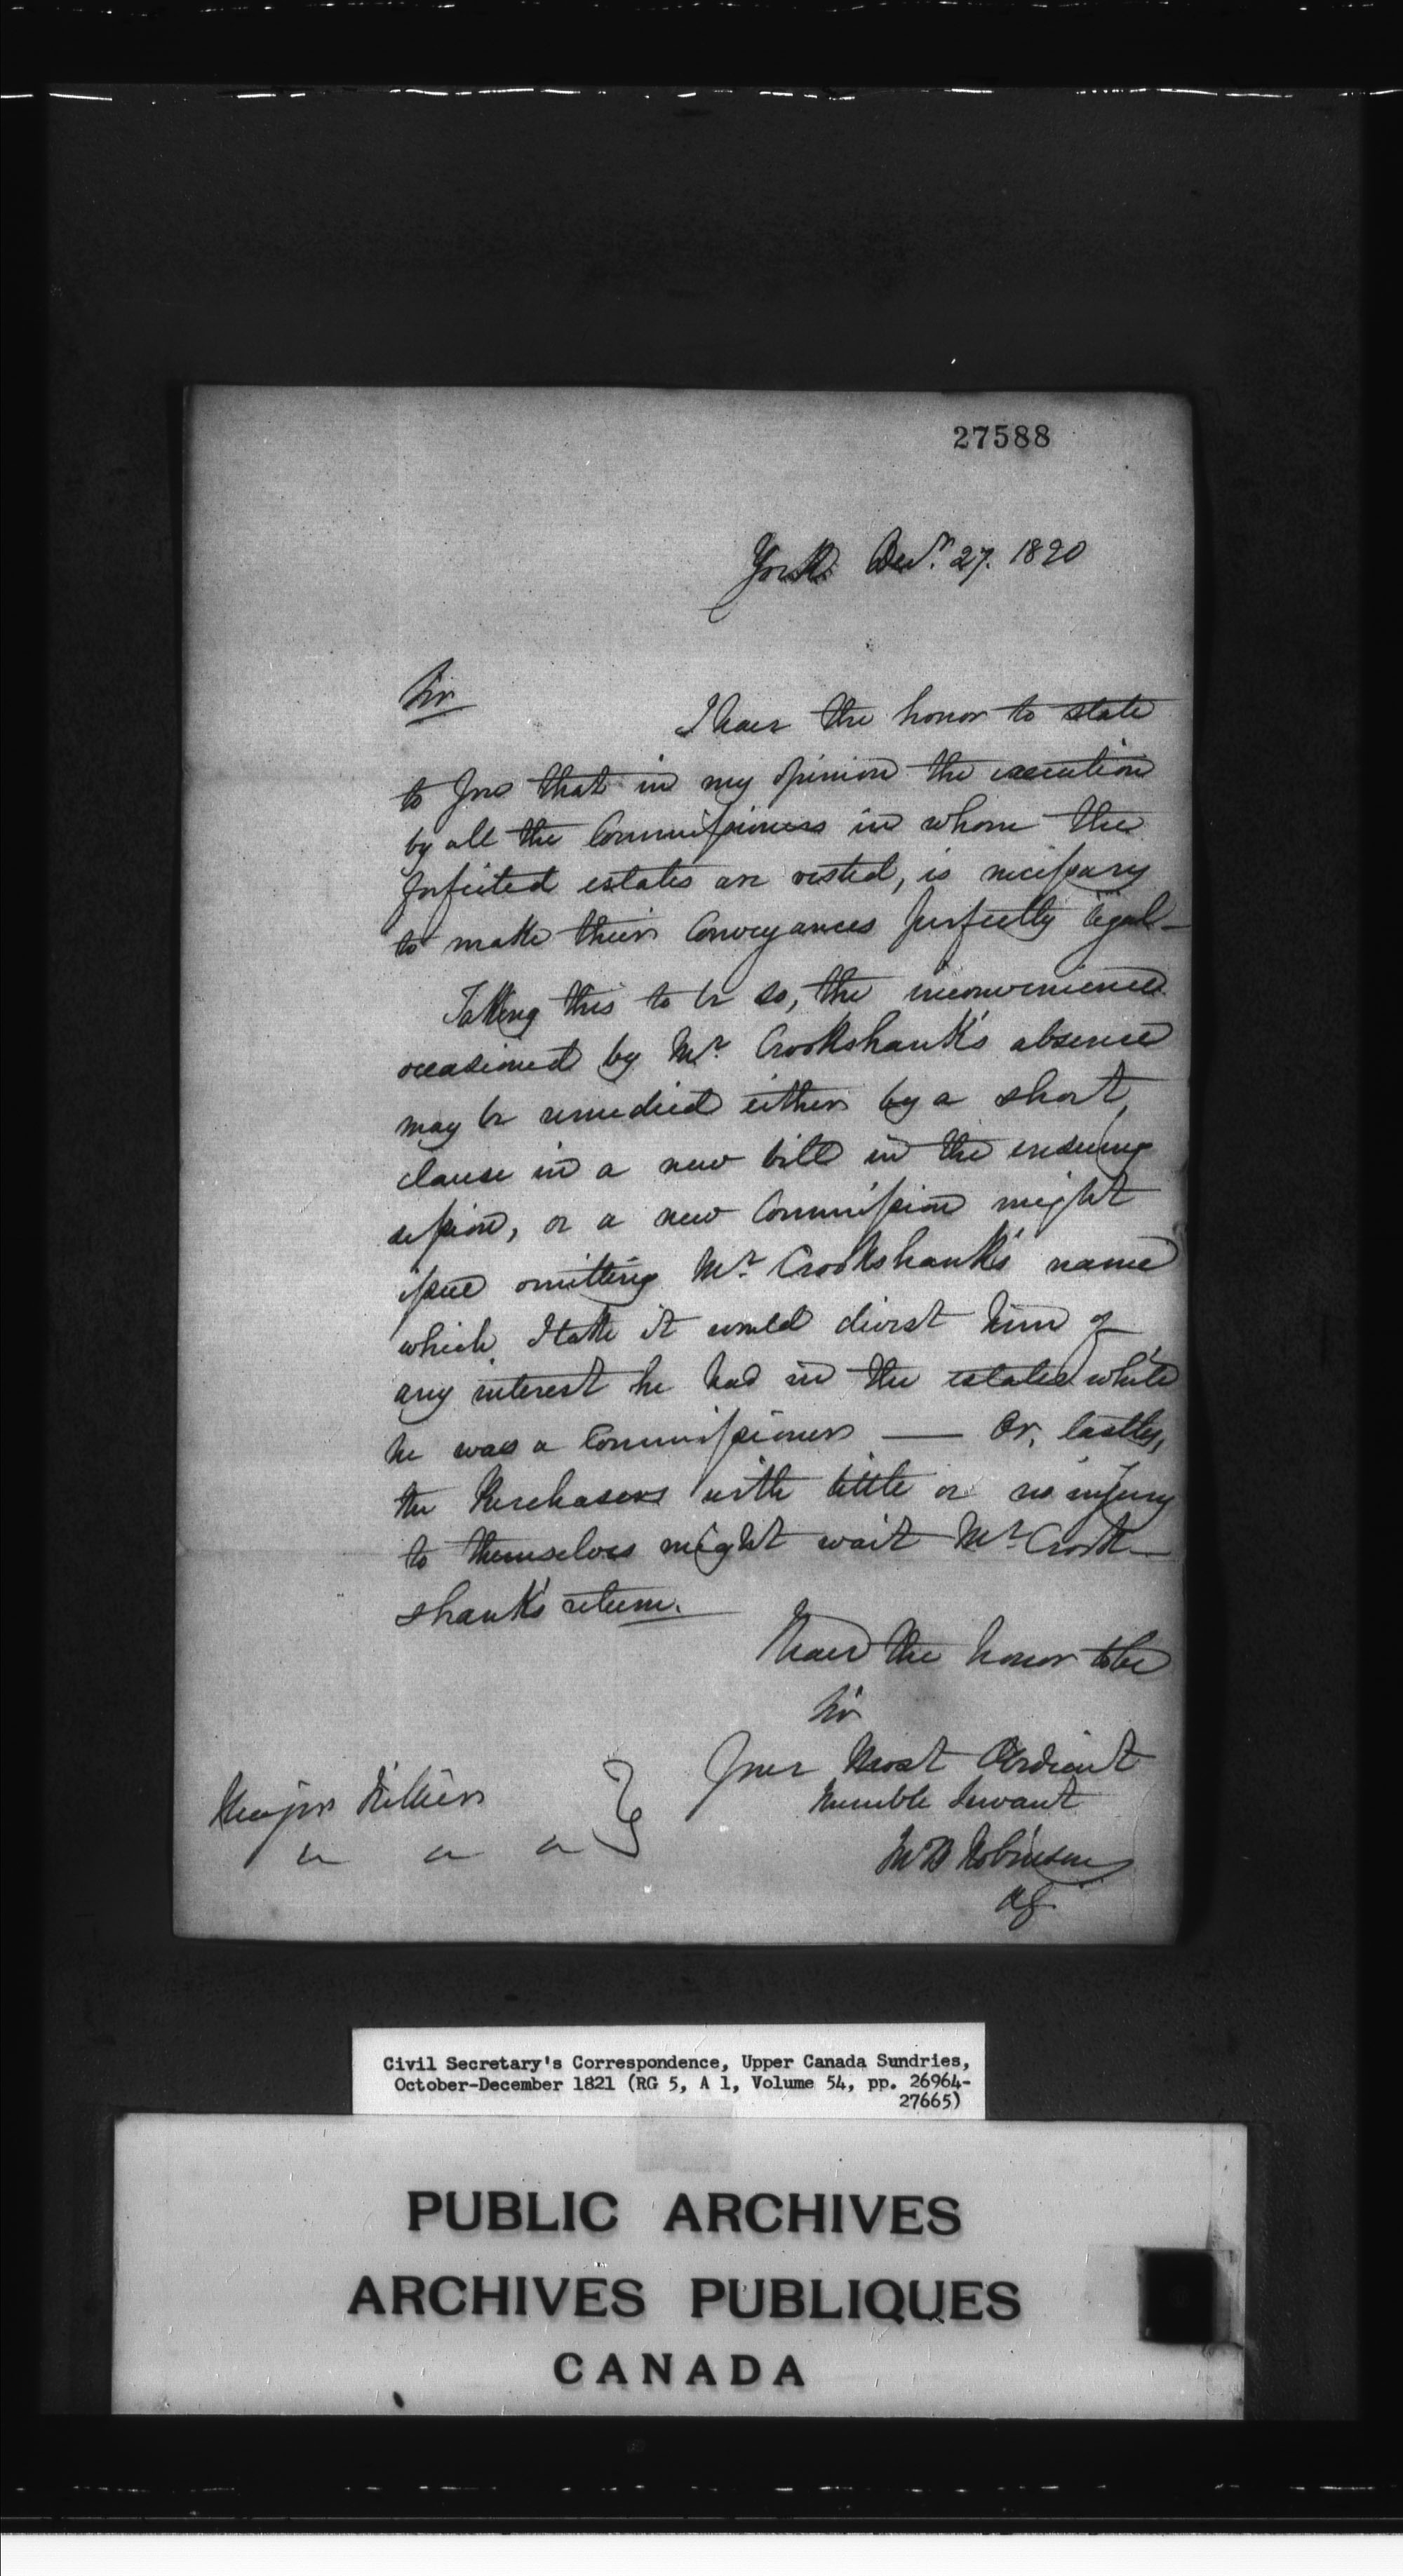 27588
York Decr. 27. 1820
Sir
I have the honor to state
to you that in my opinion the execution
by all the Commissioners in whom the
forfeited estates are vested, is necessary
to make their Conveyances perfectly legal—
Taking this to be so, the inconvenience
occasioned by Mr. Crookshank's absence
may be remedied either by a short
clause in a new bill in the ensuing
session, or a new Commission might
issue omitting Mr. Crookshank's name
which I take it would divest him of
any interest he had in the estates while
he was a Commissioner — Or, lastly,
the Purchasers with little or no injury
to themselves might wait Mr. Crook—
shank's return.
I have the honor to be
Sir
Your Most Obedient
humble Servant
Robinson
AG
Major Hillier
Civil Secretary's Correspondence, Upper Canada Sundries,
October-December 1821 (RG 5, A 1, Volume 54, pp. 26964-
27665)
PUBLIC ARCHIVES
ARCHIVES PUBLIQUES
CANADA